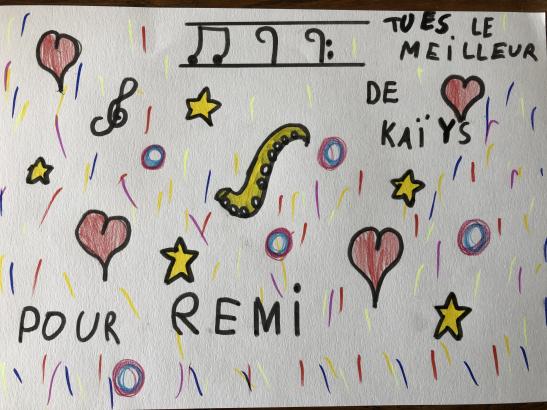 TU ES LE
MEILLEUR
DE
KAÏYS
POUR REMI